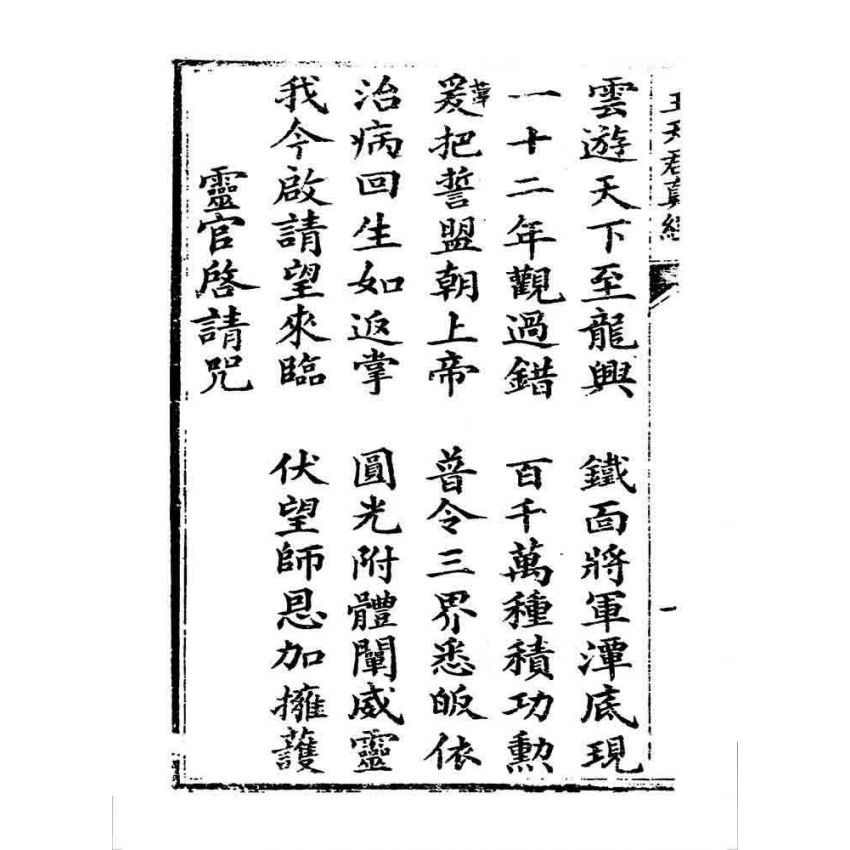 王天君真經
一
雲遊天下至龍興 鐵面將軍潭底現
一十二年觀過錯 百千萬種積功勲
爰把誓盟朝上帝 普令三界悉皈依
治病回生如返掌 圓光附體闡威靈
我今啟請望來臨 伏望師恩加擁護
靈官啓請咒